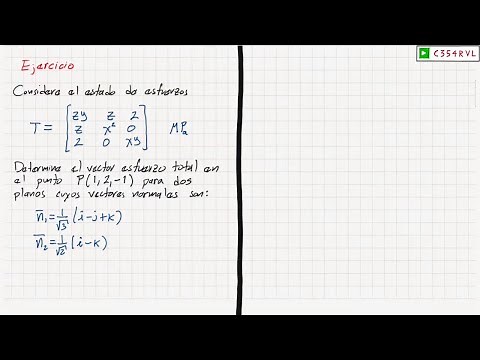 C354RVL
Ejercicio
Considere el estado de esfuerzos
T = [ zy z 2
z x² 0
2 0 xy ] MPa
Determine el vector esfuerzo total en
el punto P(1,2,-1) para dos
planos cuyos vectores normales son:
n̄₁ = 1/√3 (i-j+k)
n̄₂ = 1/√2 (i-k)